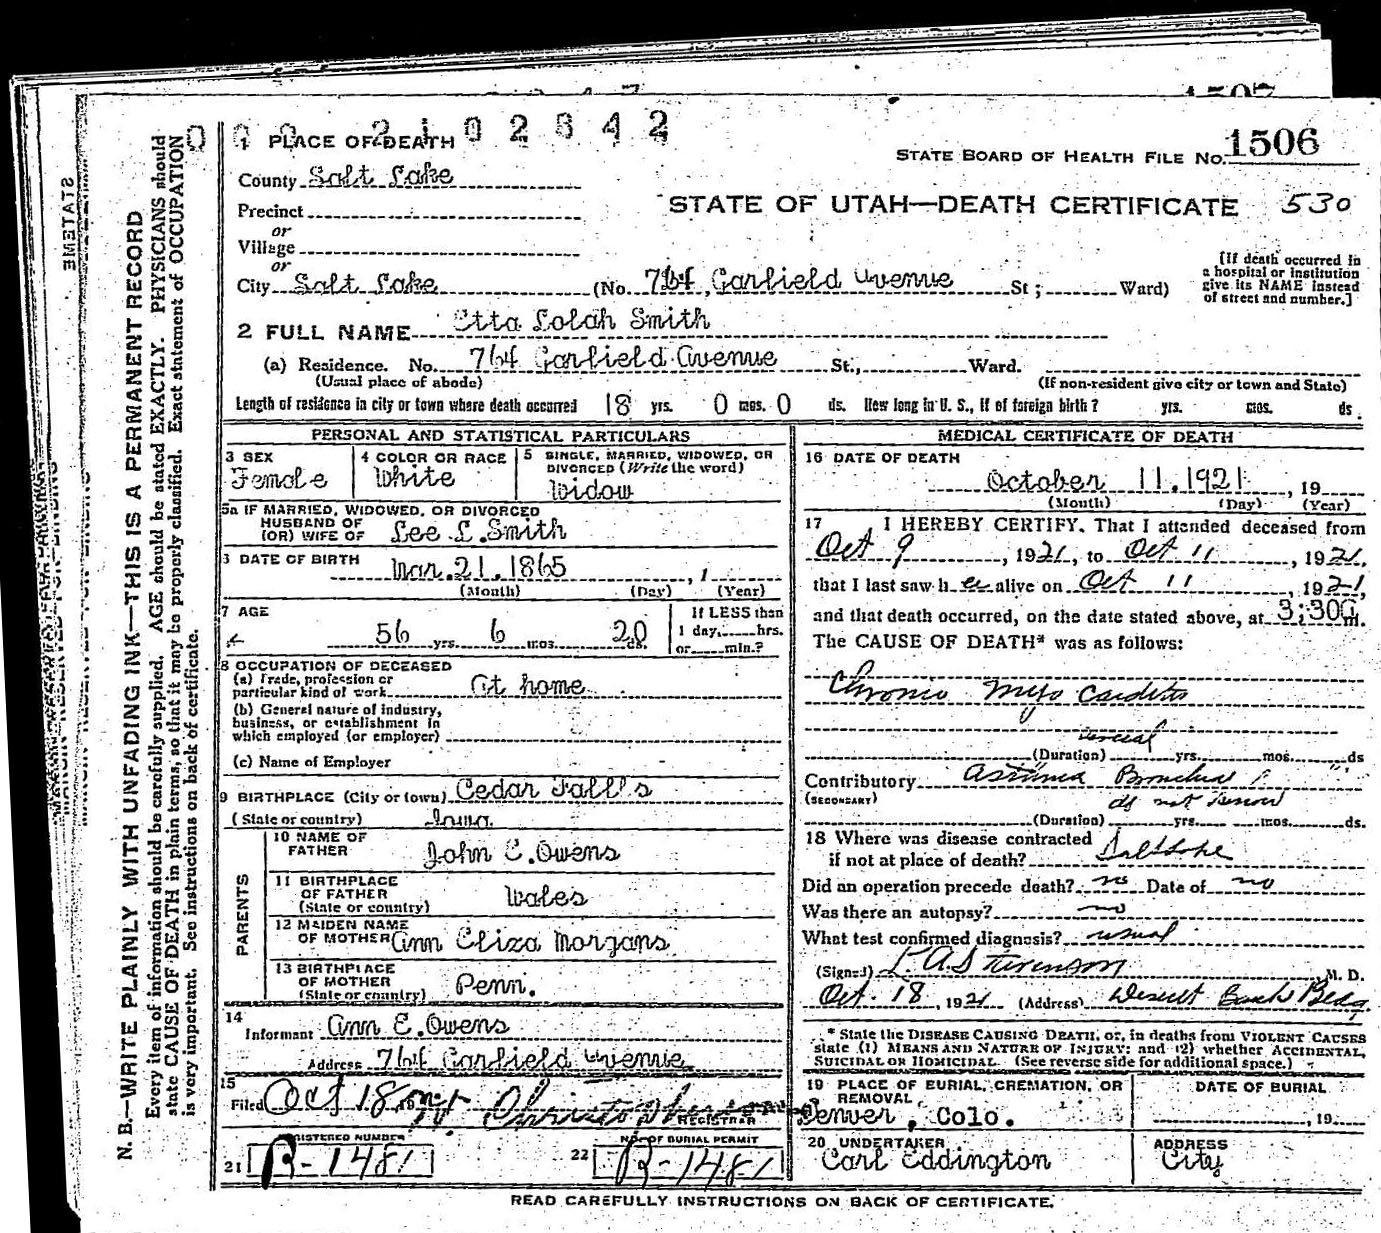 1507
0 0 0 2 1 0 2 3 4 2
1 PLACE OF DEATH
STATE BOARD OF HEALTH FILE NO. 1506
County Salt Lake
STATE OF UTAH—DEATH CERTIFICATE 530
Precinct
or
Village
or
City Salt Lake (No. 764, Garfield Avenue St; Ward)
[If death occurred in
a hospital or institution
give its NAME instead
of street and number.]
2 FULL NAME Etta Lolah Smith
(a) Residence. No. 764 Garfield Avenue St., Ward.
(Usual place of abode) (If non-resident give city or town and State)
Length of residence in city or town where death occurred 18 yrs. 0 mos. 0 ds. How long in U. S., if of foreign birth? yrs. mos. ds.
PERSONAL AND STATISTICAL PARTICULARS
3 SEX
Female
4 COLOR OR RACE
White
5 SINGLE, MARRIED, WIDOWED, OR
DIVORCED (Write the word)
Widow
5a IF MARRIED, WIDOWED, OR DIVORCED
HUSBAND OF
(OR) WIFE OF Lee L. Smith
6 DATE OF BIRTH Mar. 21. 1865, 1
(Month) (Day) (Year)
7 AGE
56 yrs. 6 mos. 20 ds.
If LESS than
1 day, hrs.
or min.?
8 OCCUPATION OF DECEASED
(a) Trade, profession or
particular kind of work At home
(b) General nature of industry,
business, or establishment in
which employed (or employer)
(c) Name of Employer
9 BIRTHPLACE (City or town) Cedar Falls
(State or country) Iowa
PARENTS
10 NAME OF
FATHER John E. Owens
11 BIRTHPLACE
OF FATHER
(State or country) Wales
12 MAIDEN NAME
OF MOTHER Ann Eliza Morgans
13 BIRTHPLACE
OF MOTHER
(State or country) Penn.
14
Informant Ann E. Owens
Address 764 Garfield Avenue
15
Filed Oct 18
REGISTRAR
REGISTERED NUMBER
21 B-1481
NO. OF BURIAL PERMIT
22 B-1481
MEDICAL CERTIFICATE OF DEATH
16 DATE OF DEATH
October 11, 1921, 19
(Month) (Day) (Year)
17 I HEREBY CERTIFY, That I attended deceased from
Oct 9, 1921, to Oct 11, 1921,
that I last saw h er alive on Oct 11, 1921,
and that death occurred, on the date stated above, at 3:30a m.
The CAUSE OF DEATH* was as follows:
Chronic Myo Carditis
several
(Duration) yrs. mos. ds
Contributory Asthma Bronchial
(SECONDARY) do not know
(Duration) yrs. mos. ds.
18 Where was disease contracted
if not at place of death? Salt Lake
Did an operation precede death? no Date of no
Was there an autopsy? no
What test confirmed diagnosis? usual
(Signed) L A Stevenson M. D.
Oct. 18, 1921 (Address) Deseret Bank Bldg
* State the DISEASE CAUSING DEATH, or, in deaths from VIOLENT CAUSES
state (1) MEANS AND NATURE OF INJURY; and (2) whether ACCIDENTAL,
SUICIDAL OR HOMICIDAL. (See reverse side for additional space.)
19 PLACE OF BURIAL, CREMATION, OR
REMOVAL
Denver, Colo.
DATE OF BURIAL
, 19
20 UNDERTAKER
Carl Eddington
ADDRESS
City
READ CAREFULLY INSTRUCTIONS ON BACK OF CERTIFICATE.
N. B.—WRITE PLAINLY WITH UNFADING INK—THIS IS A PERMANENT RECORD
Every item of information should be carefully supplied. AGE should be stated EXACTLY. PHYSICIANS should
state CAUSE OF DEATH in plain terms, so that it may be properly classified. Exact statement of OCCUPATION
is very important. See instructions on back of certificate.
STATEME